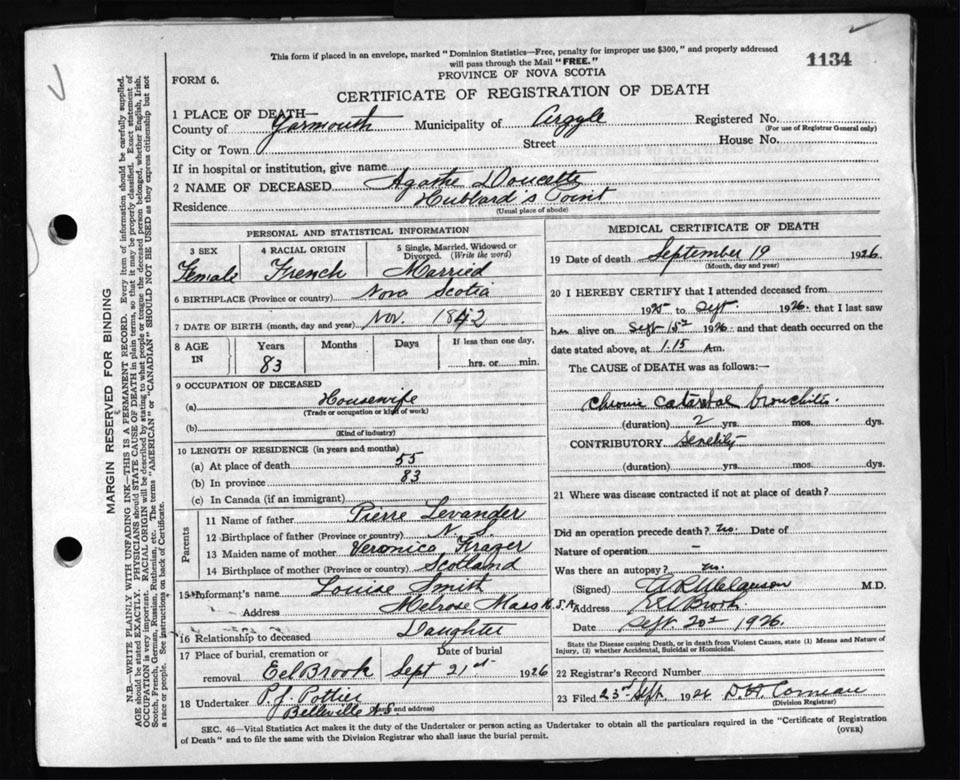 This form if placed in an envelope, marked "Dominion Statistics—Free, penalty for improper use $300," and properly addressed
will pass through the Mail "FREE."
1134
PROVINCE OF NOVA SCOTIA
FORM 6.
CERTIFICATE OF REGISTRATION OF DEATH
1 PLACE OF DEATH—
County of Yarmouth Municipality of Argyle Registered No.
(For use of Registrar General only)
City or Town Street House No.
If in hospital or institution, give name
2 NAME OF DECEASED Agathe Doucette
Residence Hubbard's Point
(Usual place of abode)
PERSONAL AND STATISTICAL INFORMATION
3 SEX 4 RACIAL ORIGIN 5 Single, Married, Widowed or Divorced. (Write the word)
Female French Married
6 BIRTHPLACE (Province or country) Nova Scotia
7 DATE OF BIRTH (month, day and year) Nov. 1842
8 AGE IN Years Months Days If less than one day,
83 hrs. or min.
9 OCCUPATION OF DECEASED
(a) Housewife
(Trade or occupation or kind of work)
(b)
(Kind of industry)
10 LENGTH OF RESIDENCE (in years and months)
(a) At place of death 55
(b) In province 83
(c) In Canada (if an immigrant)
Parents
11 Name of father Pierre Levander
12 Birthplace of father (Province or country) N.S.
13 Maiden name of mother Veronica Frazer
14 Birthplace of mother (Province or country) Scotland
15 Informant's name Louise Smith
Address Melrose Mass U.S.A.
16 Relationship to deceased Daughter
17 Place of burial, cremation or removal Date of burial
Eel Brook Sept 21st 1926
18 Undertaker P. J. Pottier
Belleville N.S.
(Name and address)
MEDICAL CERTIFICATE OF DEATH
19 Date of death September 19 1926
(Month, day and year)
20 I HEREBY CERTIFY that I attended deceased from
1925 to Sept. 1926 that I last saw
her alive on Sept 15th 1926 and that death occurred on the
date stated above, at 1.15 Am.
The CAUSE of DEATH was as follows:—
Chronic catarrhal bronchitis.
(duration) 2 yrs. mos. dys.
CONTRIBUTORY Senility
(duration) yrs. mos. dys.
21 Where was disease contracted if not at place of death?
Did an operation precede death? no. Date of
Nature of operation –
Was there an autopsy? no.
(Signed) M.D.
Address Eel Brook
Date Sept 20th 1926.
State the Disease causing Death, or in death from Violent Causes, state (1) Means and Nature of
Injury, (2) whether Accidental, Suicidal or Homicidal.
22 Registrar's Record Number
23 Filed 23rd Sept. 1926 Comeau
(Division Registrar)
SEC. 46—Vital Statistics Act makes it the duty of the Undertaker or person acting as Undertaker to obtain all the particulars required in the "Certificate of Registration
of Death" and to file the same with the Division Registrar who shall issue the burial permit. (OVER)
MARGIN RESERVED FOR BINDING
N.B.—WRITE PLAINLY WITH UNFADING INK—THIS IS A PERMANENT RECORD. Every item of information should be carefully supplied.
AGE should be stated EXACTLY. PHYSICIANS should STATE CAUSE OF DEATH in plain terms, so that it may be properly classified. Exact statement of
OCCUPATION is very important. RACIAL ORIGIN will be described by stating to what people or tongue the deceased person belonged, whether English, Irish,
Scotch, French, German, Russian, Ruthenian, etc. The terms "AMERICAN" or "CANADIAN" SHOULD NOT BE USED as they express citizenship but not
a race or people. See instructions on back of Certificate.